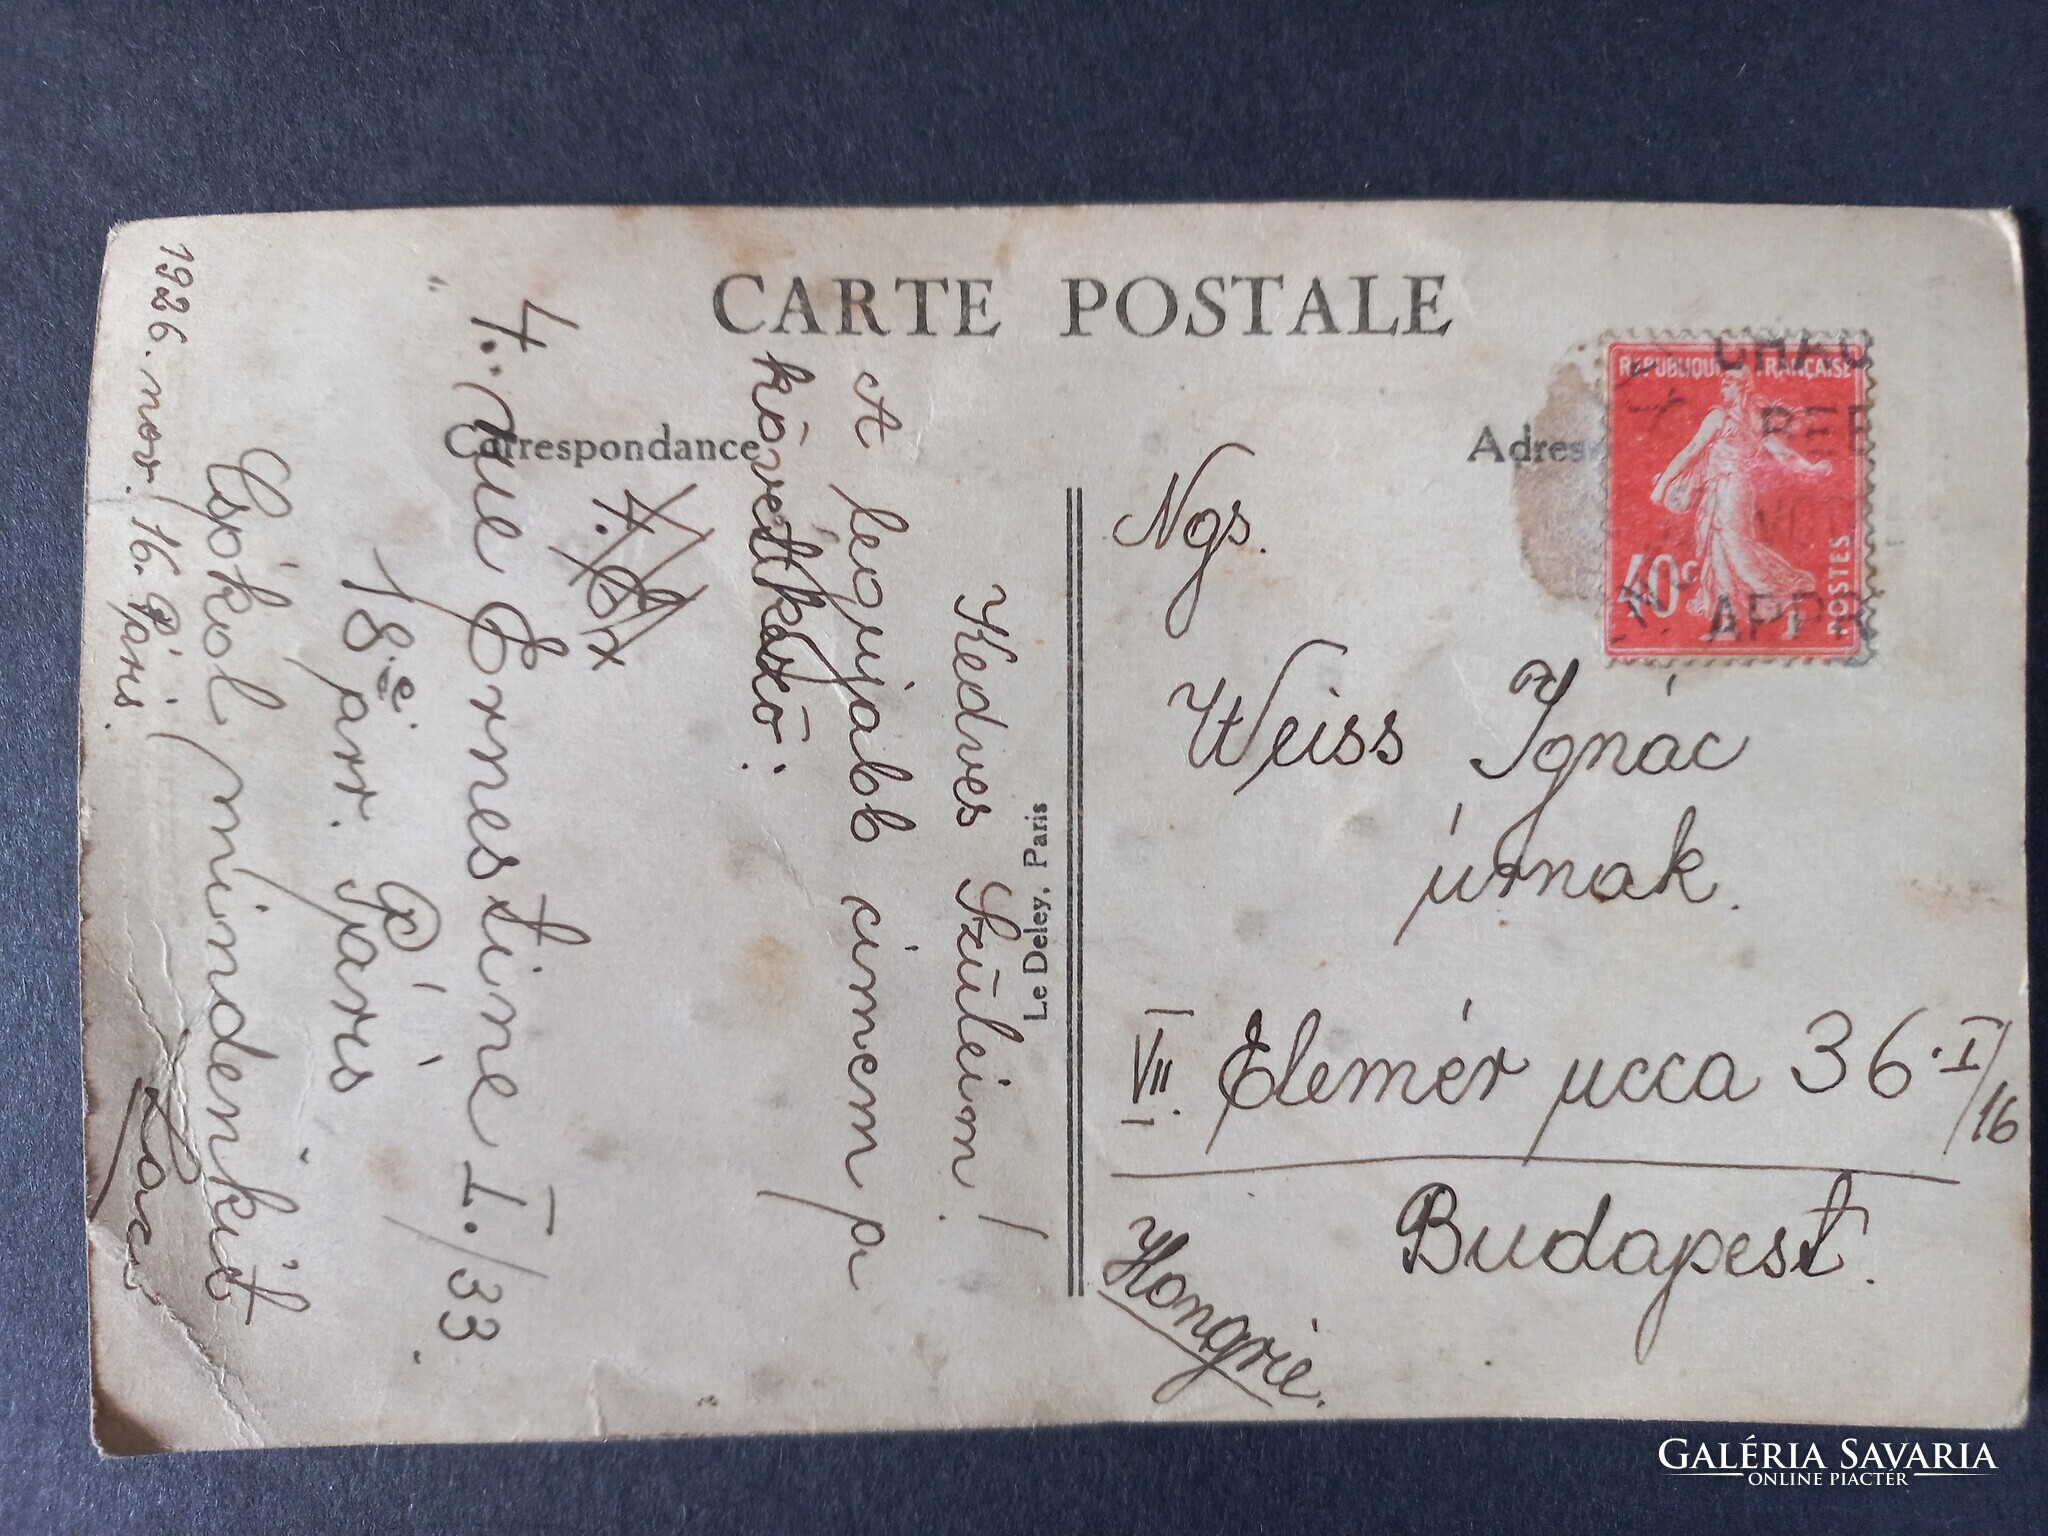 CARTE POSTALE
Correspondance
Kedves Szüleim!
A legujabb címem a
következő:
4. rue Ernestine I./33.
18.e arr. Páris
Csókol mindenkit
1926. nov. 16. Páris.
Le Deley, Paris
REPUBLIQUE FRANÇAISE
40c
POSTES
Ngs.
Weiss Ignác
úrnak.
VII. Elemér ucca 36. I/16
Budapest.
Hongrie.
GALÉRIA SAVARIA
ONLINE PIACTÉR